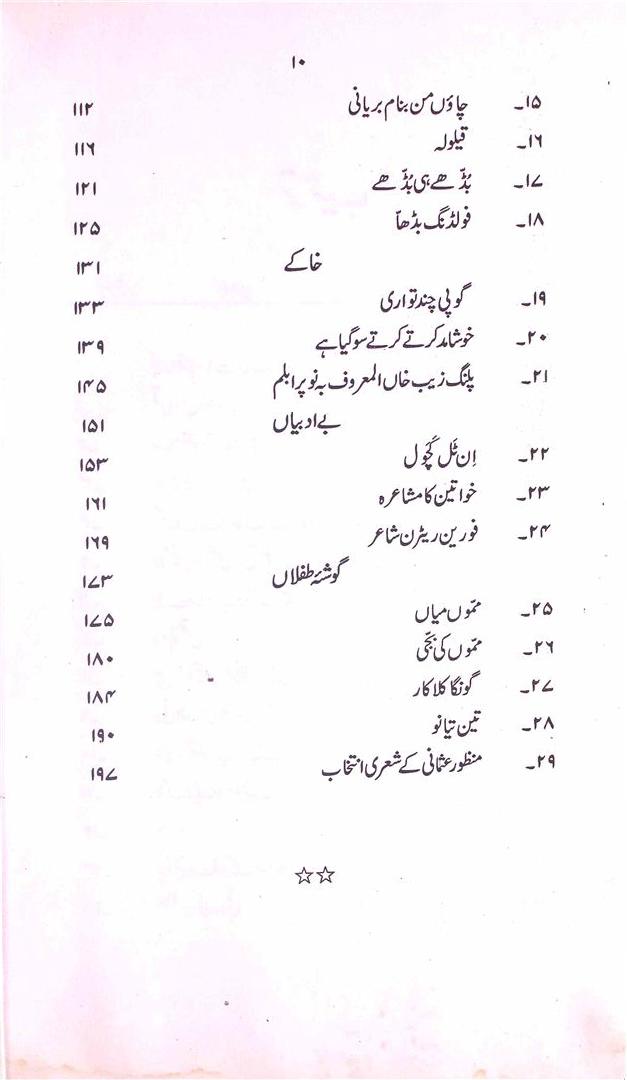 ۱۰
۱۵۔ چاؤں من بنام بریانی ۱۱۲
۱۶۔ قیلولہ ۱۱۶
۱۷۔ بُڈّھے ہی بُڈّھے ۱۲۱
۱۸۔ فولڈنگ بڈھاّ ۱۲۵
خاکے ۱۳۱
۱۹۔ گوپی چند تواری ۱۳۳
۲۰۔ خوشامد کرتے کرتے سو گیا ہے ۱۳۹
۲۱۔ پلنگ زیب خاں المعروف بہ نو پرابلم ۱۴۵
بے ادبیاں ۱۵۱
۲۲۔ اِن ٹَل کُچول ۱۵۳
۲۳۔ خواتین کا مشاعرہ ۱۶۱
۲۴۔ فورین ریٹرن شاعر ۱۶۹
گوشۂ طفلاں ۱۷۳
۲۵۔ ممّوں میاں ۱۷۵
۲۶۔ ممّوں کی بچّی ۱۸۰
۲۷۔ گونگا کلاکار ۱۸۴
۲۸۔ تین تیانو ۱۹۰
۲۹۔ منظور عثمانی کے شعری انتخاب ۱۹۷
☆☆